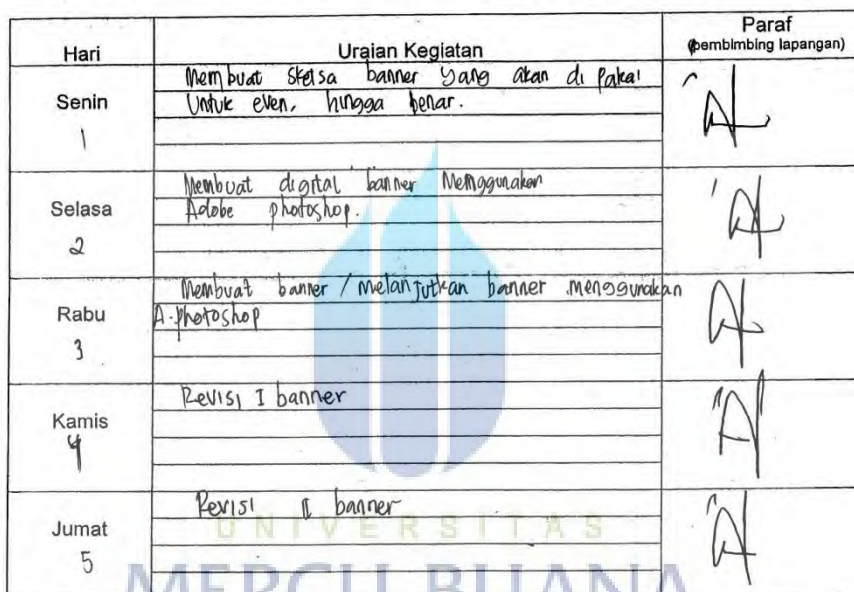 Hari Uraian Kegiatan Paraf
(pembimbing lapangan)
Membuat sketsa banner yang akan di pakai
Senin Untuk even, hingga benar.
1
Membuat digital banner Menggunakan
Selasa Adobe photoshop.
2
Membuat banner / melanjutkan banner menggunakan
Rabu A. photoshop
3
Revisi I banner
Kamis
4
Revisi II banner
Jumat
5
UNIVERSITAS
MERCU BUANA